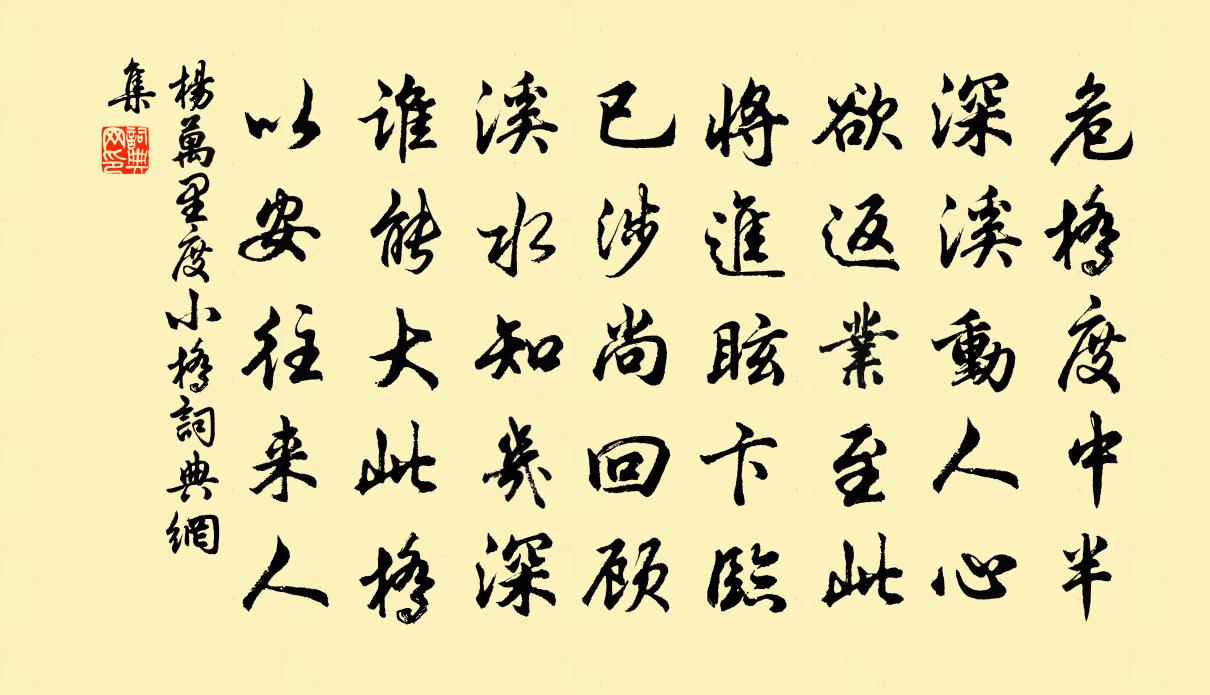 危橋度中半
深溪動人心
欲返業至此
將進眩下臨
已涉尚回顾
溪水知幾深
誰能大此橋
以安往来人
楊萬里度小橋詞典網
集
詞典
网印